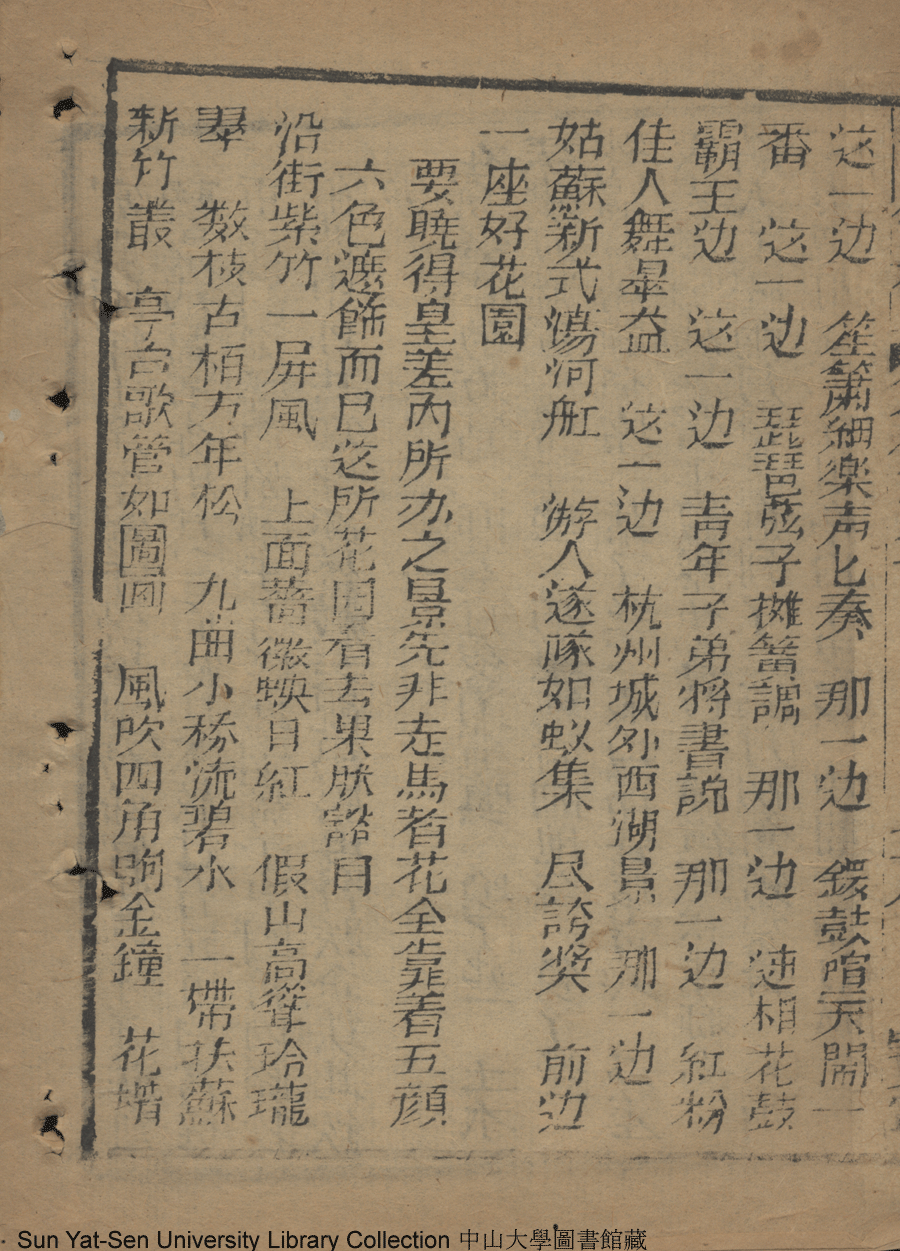 这一边　笙簫細楽声匕奏　那一边　鑼鼓喧天閙一
番　这一边　琵琶弦子攤簧調　那一边　連相花鼓
霸王边　这一边　青年子弟将書説　那一边　紅粉
佳人舞　益　这一边　杭州城外西湖景　那一边
姑蘇新式湯河舡　游人遂隊如蚁集　尽誇奬　前边
一座好花園
要曉得皇差内所办之景先非走馬看花全靠着五顔
六色遮飾而已这所花园看去果然豁目
沿街紫竹一屏風　上面薔薇暎日紅　假山高聳玲瓏
翠　数枝古栢万年松　九曲小桥流碧水　一帶扶蘇
新竹叢　亭台歌管如圖画　風吹四角响金鐘　花墻
Sun Yat-Sen University Library Collection 中山大學圖書館藏